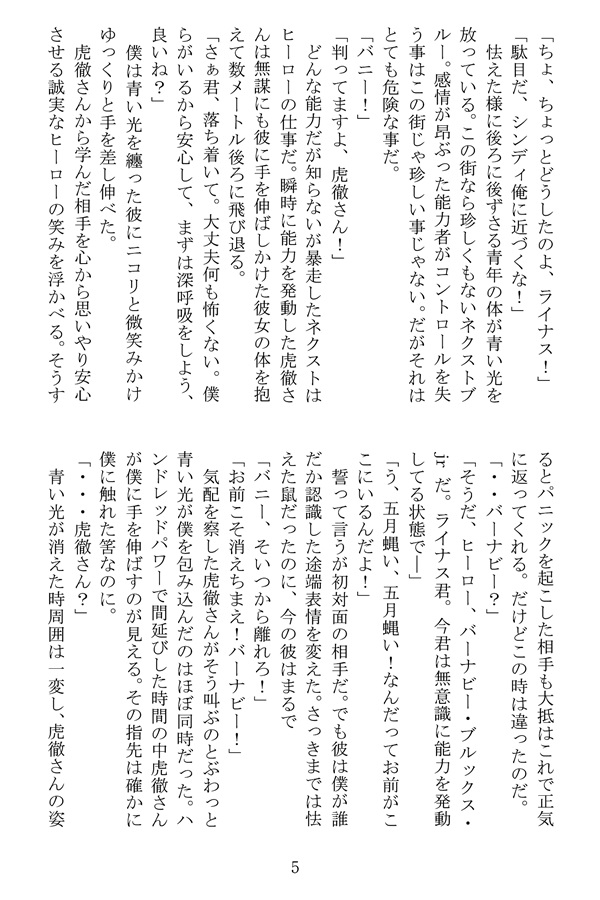 「ちょ、ちょっとどうしたのよ、ライナス！」
「駄目だ、シンディ俺に近づくな！」
　怯えた様に後ろに後ずさる青年の体が青い光を
放っている。この街なら珍しくもないネクストブ
ルー。感情が昂ぶった能力者がコントロールを失
う事はこの街じゃ珍しい事じゃない。だがそれは
とても危険な事だ。
「バニー！」
「判ってますよ、虎徹さん！」
　どんな能力だが知らないが暴走したネクストは
ヒーローの仕事だ。瞬時に能力を発動した虎徹さ
んは無謀にも彼に手を伸ばしかけた彼女の体を抱
えて数メートル後ろに飛び退る。
「さぁ君、落ち着いて。大丈夫何も怖くない。僕
らがいるから安心して、まずは深呼吸をしよう、
良いね？」
　僕は青い光を纏った彼にニコリと微笑みかけ
ゆっくりと手を差し伸べた。
　虎徹さんから学んだ相手を心から思いやり安心
させる誠実なヒーローの笑みを浮かべる。そうす
るとパニックを起こした相手も大抵はこれで正気
に返ってくれる。だけどこの時は違ったのだ。
「・・バーナビー？」
「そうだ、ヒーロー、バーナビー・ブルックス・
jr だ。ライナス君。今君は無意識に能力を発動
してる状態で―」
「う、五月蝿い、五月蝿い！なんだってお前がこ
こにいるんだよ！」
　誓って言うが初対面の相手だ。でも彼は僕が誰
だか認識した途端表情を変えた。さっきまでは怯
えた鼠だったのに、今の彼はまるで
「バニー、そいつから離れろ！」
「お前こそ消えちまえ！バーナビー！」
　気配を察した虎徹さんがそう叫ぶのとぶわっと
青い光が僕を包み込んだのはほぼ同時だった。ハ
ンドレッドパワーで間延びした時間の中虎徹さん
が僕に手を伸ばすのが見える。その指先は確かに
僕に触れた筈なのに。
「・・・虎徹さん？」
　青い光が消えた時周囲は一変し、虎徹さんの姿
5